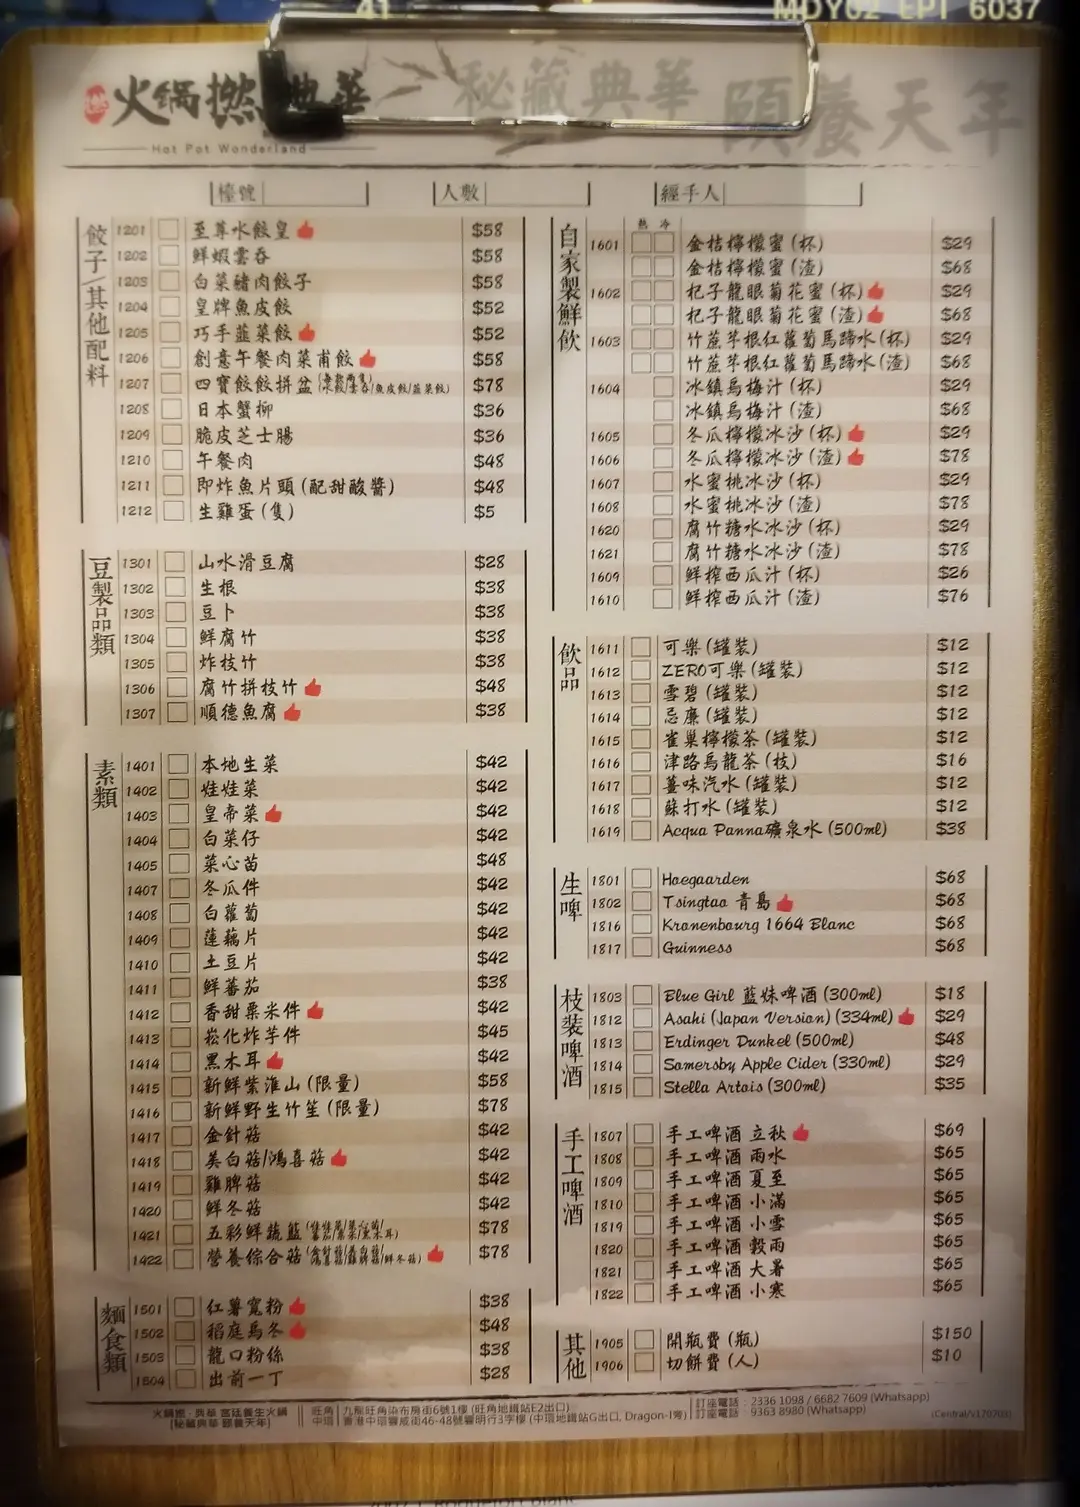 41
MDY02 EPT 6037
火鍋撚 典華
秘藏典華 頤養天年
Hot Pot Wonderland
檯號 人數 經手人
餃子/其他配料
1201 至尊水餃皇 $58
1202 鮮蝦雲吞 $58
1203 白菜豬肉餃子 $58
1204 皇牌魚皮餃 $52
1205 巧手韮菜餃 $52
1206 創意午餐肉菜甫餃 $58
1207 四寶餃餃拼盆 /魚皮餃/韮菜餃) $78
1208 日本蟹柳 $36
1209 脆皮芝士腸 $36
1210 午餐肉 $48
1211 即炸魚片頭 (配甜酸醬) $48
1212 生雞蛋 (隻) $5
豆製品類
1301 山水滑豆腐 $28
1302 生根 $38
1303 豆卜 $38
1304 鮮腐竹 $38
1305 炸枝竹 $38
1306 腐竹拼枝竹 $48
1307 順德魚腐 $38
素類
1401 本地生菜 $42
1402 娃娃菜 $42
1403 皇帝菜 $42
1404 白菜仔 $42
1405 菜心苗 $48
1407 冬瓜件 $42
1408 白蘿蔔 $42
1409 蓮藕片 $42
1410 土豆片 $42
1411 鮮蕃茄 $38
1412 香甜粟米件 $42
1413 崧化炸芋件 $45
1414 黑木耳 $42
1415 新鮮紫淮山 (限量) $58
1416 新鮮野生竹笙 (限量) $78
1417 金針菇 $42
1418 美白菇/鴻喜菇 $42
1419 雞脾菇 $42
1420 鮮冬菇 $42
1421 五彩鮮蔬籃 $78
1422 營養綜合菇 /鮮冬菇) $78
麵食類
1501 紅薯寬粉 $38
1502 稻庭烏冬 $48
1503 龍口粉絲 $38
1504 出前一丁 $28
自家製鮮飲
熱 冷
1601 金桔檸檬蜜 (杯) $29
金桔檸檬蜜 (渣) $68
1602 杞子龍眼菊花蜜 (杯) $29
杞子龍眼菊花蜜 (渣) $68
1603 竹蔗茅根紅蘿蔔馬蹄水 (杯) $29
竹蔗茅根紅蘿蔔馬蹄水 (渣) $68
1604 冰鎮烏梅汁 (杯) $29
冰鎮烏梅汁 (渣) $68
1605 冬瓜檸檬冰沙 (杯) $29
1606 冬瓜檸檬冰沙 (渣) $78
1607 水蜜桃冰沙 (杯) $29
1608 水蜜桃冰沙 (渣) $78
1620 腐竹糖水冰沙 (杯) $29
1621 腐竹糖水冰沙 (渣) $78
1609 鮮搾西瓜汁 (杯) $26
1610 鮮搾西瓜汁 (渣) $76
飲品
1611 可樂 (罐裝) $12
1612 ZERO可樂 (罐裝) $12
1613 雪碧 (罐裝) $12
1614 忌廉 (罐裝) $12
1615 雀巢檸檬茶 (罐裝) $12
1616 津路烏龍茶 (枝) $16
1617 薑味汽水 (罐裝) $12
1618 蘇打水 (罐裝) $12
1619 Acqua Panna礦泉水 (500ml) $38
生啤
1801 Hoegaarden $68
1802 Tsingtao 青島 $68
1816 Kronenbourg 1664 Blanc $68
1817 Guinness $68
枝裝啤酒
1803 Blue Girl 藍妹啤酒 (300ml) $18
1812 Asahi (Japan Version) (334ml) $29
1813 Erdinger Dunkel (500ml) $48
1814 Somersby Apple Cider (330ml) $29
1815 Stella Artois (300ml) $35
手工啤酒
1807 手工啤酒 立秋 $69
1808 手工啤酒 雨水 $65
1809 手工啤酒 夏至 $65
1810 手工啤酒 小滿 $65
1819 手工啤酒 小雪 $65
1820 手工啤酒 穀雨 $65
1821 手工啤酒 大暑 $65
1822 手工啤酒 小寒 $65
其他
1905 開瓶費 (瓶) $150
1906 切餅費 (人) $10
火鍋撚·典華 宮廷養生火鍋
[秘藏典華 頤養天年]
旺角 九龍旺角染布房街6號1樓 (旺角地鐵站E2出口)
中環 香港中環威街46-48號 明行3字樓 (中環地鐵站G出口, Dragon-I旁)
訂座電話 : 2336 1098 / 6682 7609 (Whatsapp)
訂座電話 : 9363 8980 (Whatsapp)
(Central/v170703)